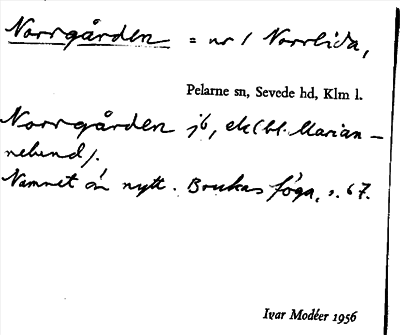 Norrgården = nr 1 Norrlida,
Pelarne sn, Sevede hd, Klm l.
Norrgården jb, ek (bl. Marian-
nelund).
Namnet är nytt. Brukas föga, s. 67.
Ivar Modéer 1956